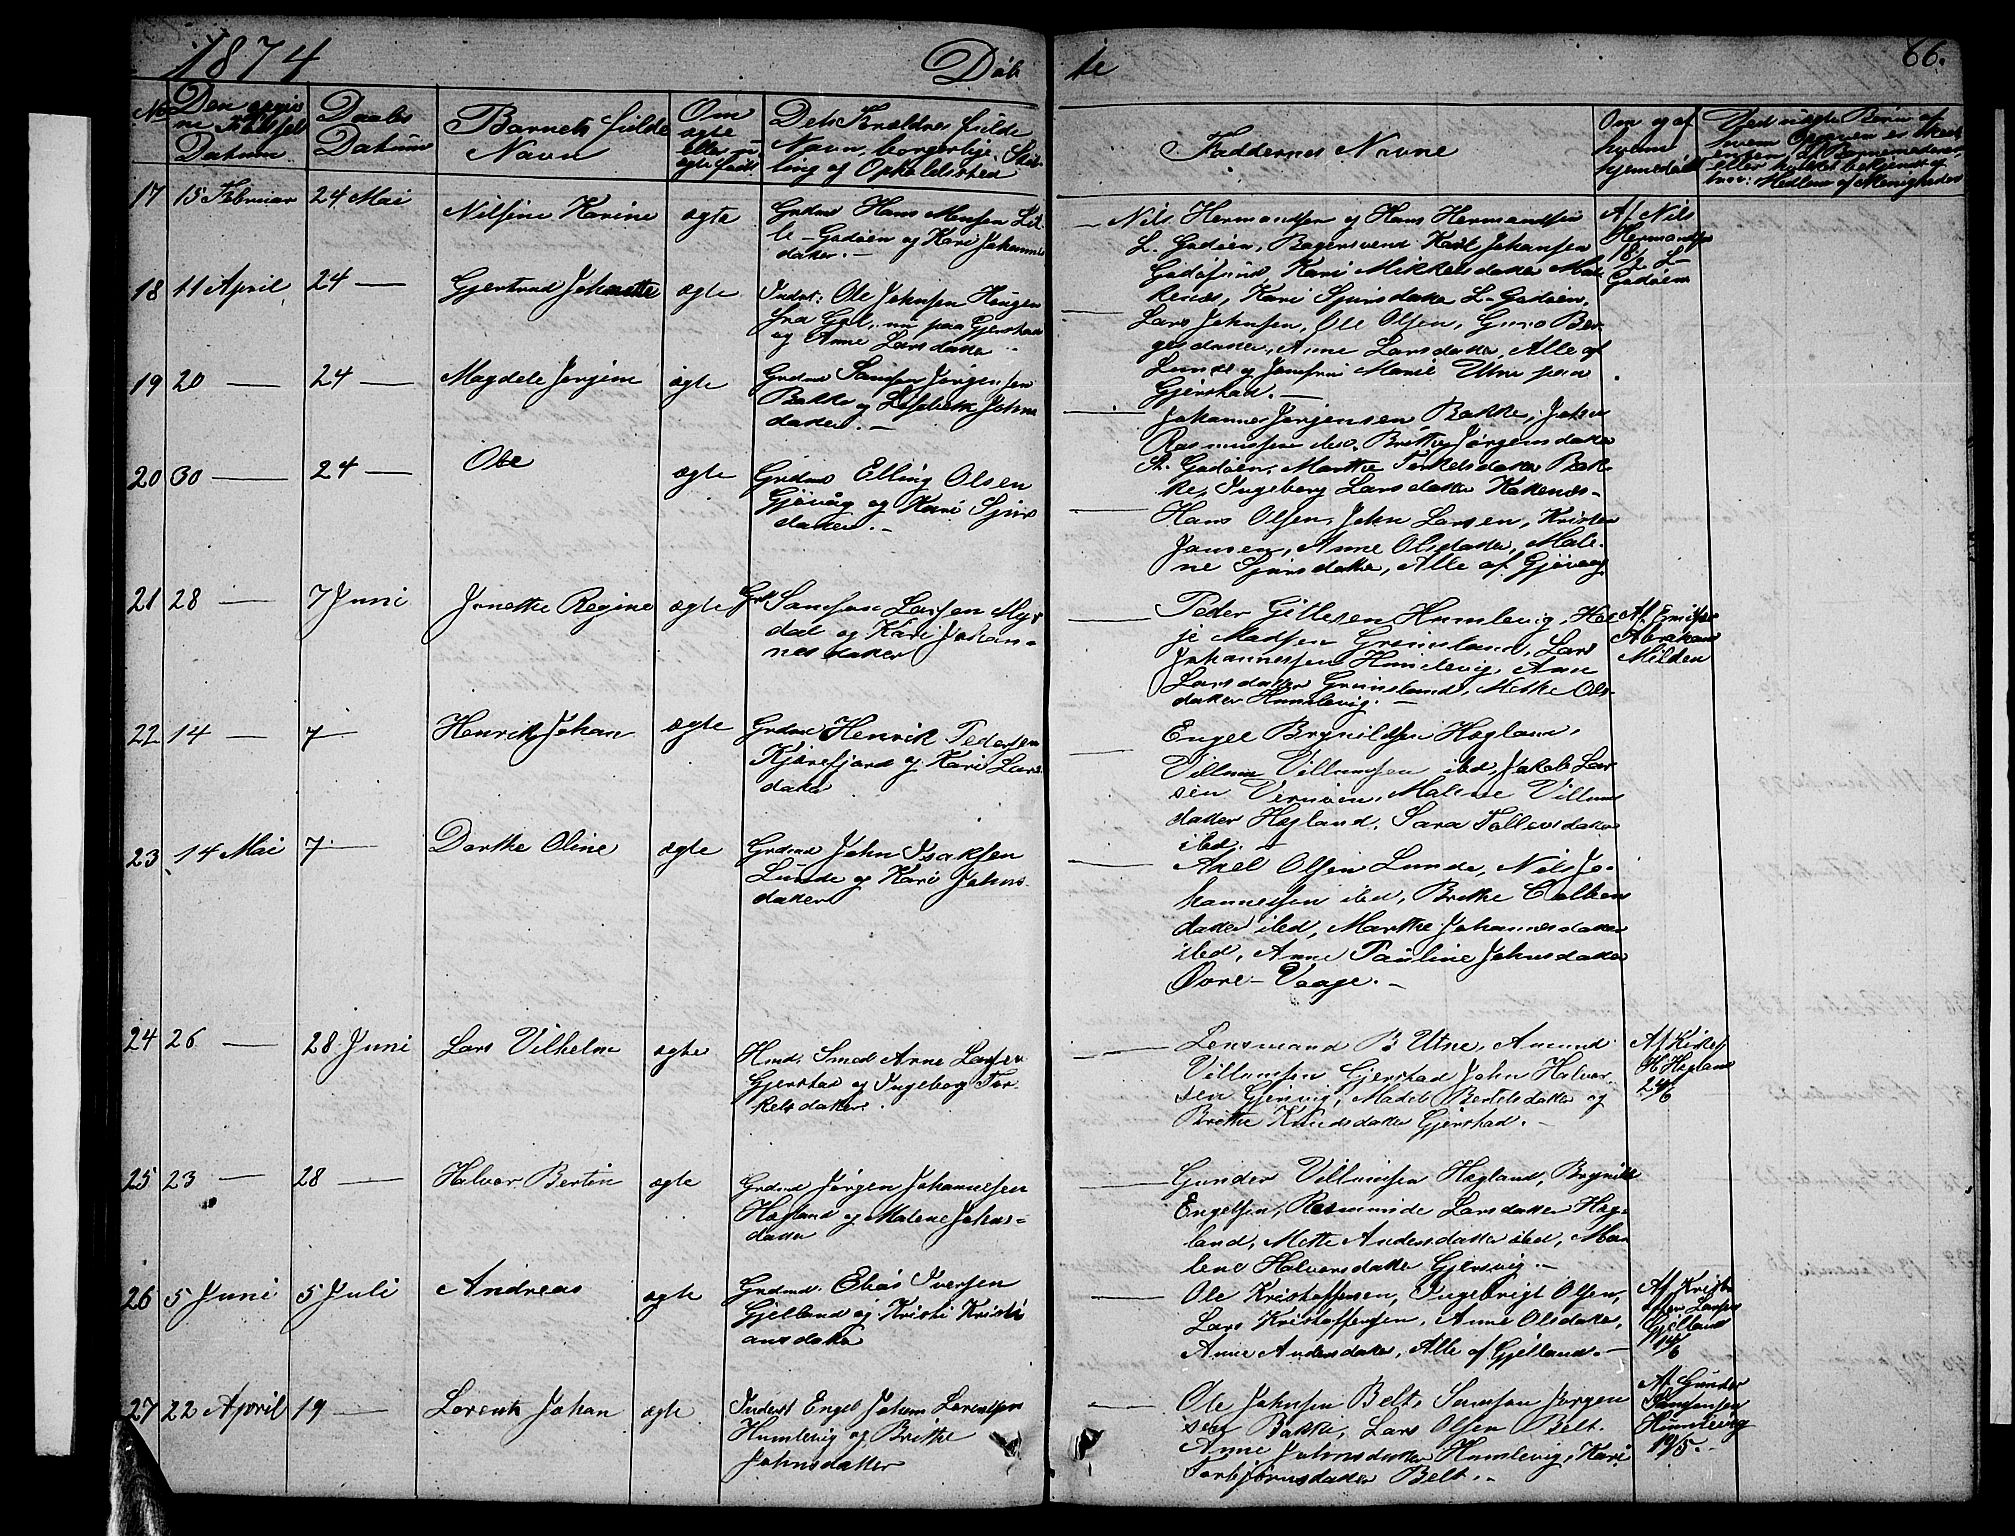 1874
Døb
te
66.
No
Den
Datum
Daabs
Datum
Barnets fulde
Navn
Om
ægte
eller u-
ægte født
Dets Forældres fulde
Navn, borgerlige Stil-
ling og Opholdssted
Faddernes Navne
Om og af
hvem
hjemedøbt
17 15 Februar 24 Mai Nilsine Karine ægte Grdmd Hans Monsen Lil-
le-Godøen og Kari Johannes
datter. -
Nils Hermandsen og Hans Hermandsen
L. Godøen, Bagersvend Karl Johansen
Godøsund, Kari Mikkelsdatter
Kari Sjursdatter L-Godøen.
Af Nils
Hermandsen
L-
Godøen
18 11 April 24 — Gjertrud Johnette ægte Inderst: Ole Johnsen Haugen
fra Gol, nu paa Gjerstad
og Anne Larsdatter
Lars Johnsen, Ole Olsen, Guro Ber-
gesdatter, Anne Larsdatter, Alle af
Lunde og Jomfru Marie Utne paa
Gjerstad. -
19 20 — 24 — Magdele Jørgine ægte Grdmd Samson Jørgensen
Bakke og Lisbeth Johns
datter. -
Johannes Jørgensen Bakke, John
Rasmussen ibd, Brithe Jørgensdatter
St. Godøen, Marthe Terkelsdatter Bak-
ke, Ingeborg Larsdatter Kokenæs-
20 30 — 24 — Ole ægte Grdmd Elling Olsen
Gjøvåg og Kari Sjurs
datter. -
Hans Olsen, John Larsen, Kristen
Jansen, Anne Olsdatter, Male-
ne Sjursdatter, Alle af Gjøvaag
21 28 — 7 Juni Jonette Regine ægte Grd Samson Larsen Myr
dal og Kari Johan-
nesdatter
Peder Gitlesen Humlevig,
Madsen Grimsland, Lars
Johannessen Humlevig, Ane
Larsdatter Grimsland, Mette Ols-
datter Humlevig. -
Af
Abraham
Milden
22 14 — 7 — Henrik Johan ægte Grdmd Henrik Pedersen
Kjørefjord og Kari Lars
datter
Engel Brynildsen Hogland,
Villum Villumsen ibd, Jakob Lar-
sen Vernøen, Malene Villums
datter Hogland, Sara Tollevsdatter
ibd. -
23 14 Mai 7 — Dorthe Oline ægte Grdmd John Isaksen
Lunde og Kari Johns-
datter
Axel Olsen Lunde, Nils Jo-
hannessen ibd, Brithe
datter ibd, Marthe Johannesdatter
ibd, Anne Pauline Johnsdatter
Øvre-Vaage. -
24 26 — 28 Juni Lars Vilhelm ægte Hmd. Smed Arne Larsen
Gjerstad og Ingeborg Ter-
kelsdatter.
Lensmand B Utne, Amund
Villumsen Gjerstad, John Halvor-
sen Gjersvig, Madele Bertelsdatter og
Brithe Knudsdatter Gjerstad. -
Af
H Hogland
24/6
25 23 — 28 — Halvor Bertin ægte Grdmd Jørgen Johannessen
Hogland og Malene Johns-
datter
Gunder Villumsen Hogland, Brynild
Engelsen, Rasmunde Larsdatter Hog-
land, Mette Andersdatter ibd, Ma-
lene Halvorsdatter Gjersvig. -
26 5 Juni 5 Juli Andreas ægte Grdmd. Elias Iversen
Gjelland og Kristi Kristi-
ansdatter
Ole Kristoffersen, Ingebrigt Olsen,
Lars Kristoffersen, Anne Olsdatter,
Anne Andersdatter, Alle af Gjelland. -
Af Krist-
offer Larsen
Gjelland
14/6
27 22 April 19 — Lorents Johan ægte Inderst Engel Johan Lorentsen
Humlevig og Brithe
Johnsdatter
Ole Johnsen Belt, Samson Jørgen
sen Bakke, Lars Olsen Belt.
Anne Johnsdatter Humlevig, Kari
Torbjørnsdatter Belt. -
Af Gunder
Samsonsen
Humlevig
19/5. -